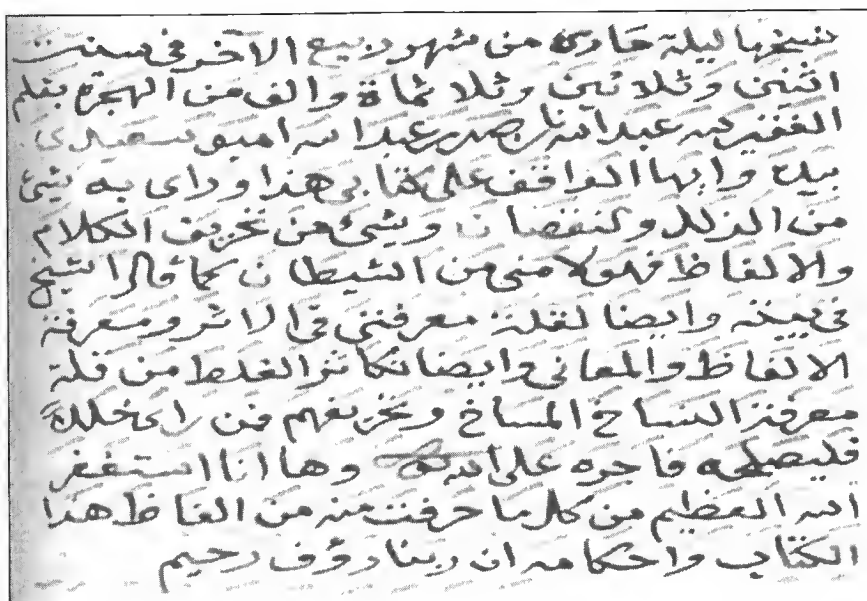 نسخها ليلة حادى من شهر ربيع الآخر في سنت
اثنين وثلاثين وثلاثماة والف من الهجرة بقلم
الفقير لله عبد الله بن عبد الله
بيده وايها الواقف على كتابي هذا وراى به شئ
من الزلل ولنقصان وشئ من تحريف الكلام
والالفاظ فهو لا منى من الشيطان كما قال الشيخ
في بيته وايضا لقلة معرفتى في الاثر ومعرفة
الالفاظ والمعاني وايضا تكاثر الغلط من قلة
معرفة النساخ المساخ وتحريفهم فمن راى خلله
فليصلحه فاجره على الله وها انا استغفر
الله العظيم من كل ما حرفت منه من الفاظ هذا
الكتاب واحكامه ان ربنا رؤف رحيم